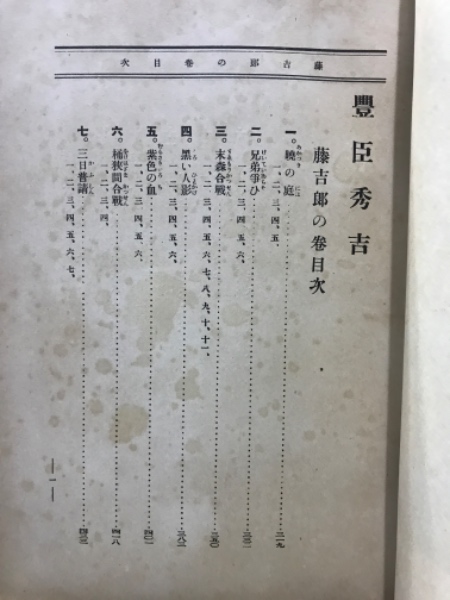 藤吉郎の巻目次
豐臣秀吉
藤吉郎の巻目次
一。曉の庭
一、二、三、四、五、
二。兄弟爭ひ
一、二、三、四、五、六、
三。末森合戰
一、二、三、四、五、六、七、八、九、十、十一、
四。黑い人影
一、二、三、四、五、六、
五。紫色の血
一、二、三、四、五、六、
六。桶狹間合戰
一、二、三、四、
七。三日普請
一、二、三、四、五、六、七、
四〇一
四一八
— 一 —